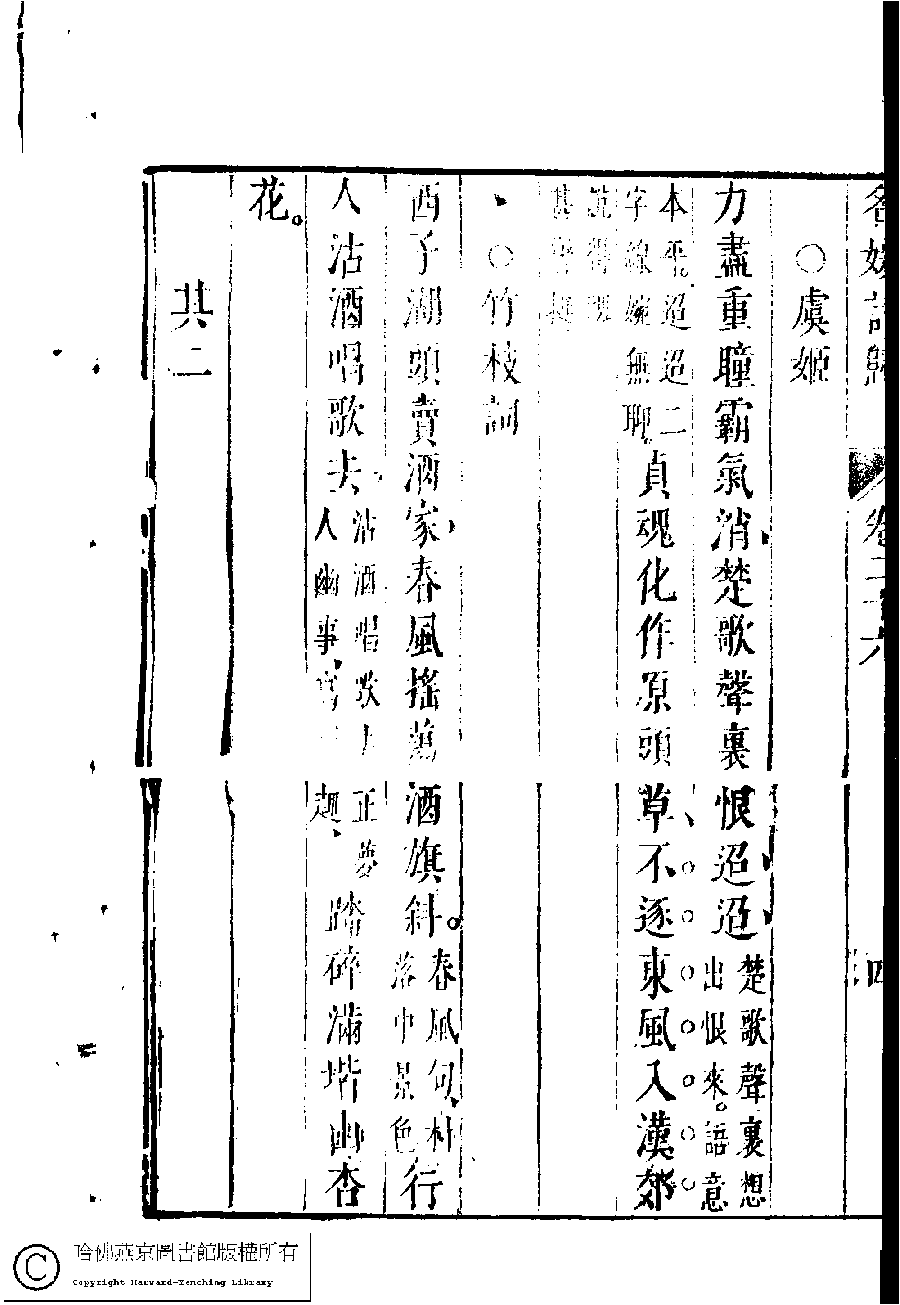 名媛詩歸 卷二十六 四
○虞姬
力盡重瞳霸氣消楚歌聲裏恨迢迢楚歌聲裏想出恨來。語意
本平。迢迢二字線婉無聊。貞魂化作原頭草不逐東風入漢郊
○竹枝詞
西子湖頭賣酒家春風搖蕩酒旗斜。春風句村落中景色行
人沽酒唱歌去沽酒唱歌人幽事正趣踏碎滿堦幽杏
花。
其二
哈佛燕京圖書館版權所有
Copyright Harvard-Yenching Library